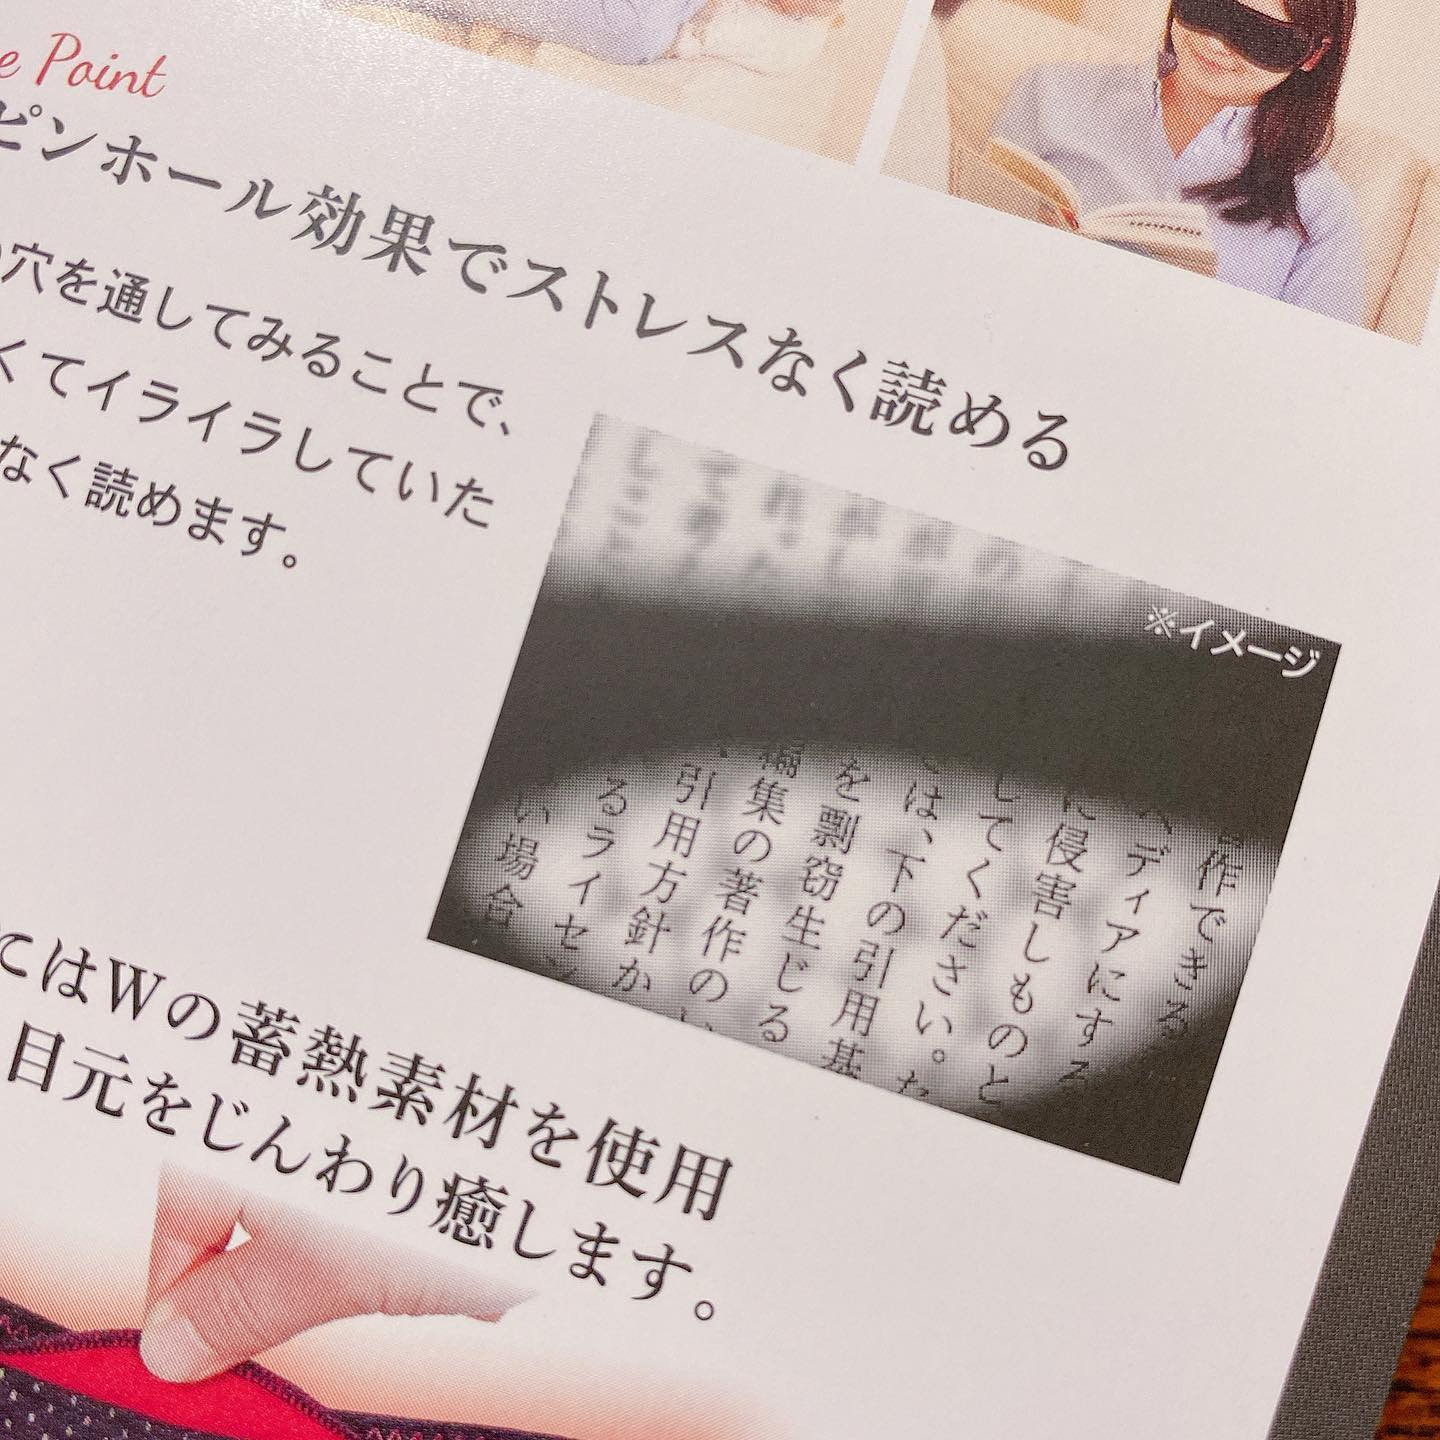 e Point
ピンホール効果でストレスなく読める
の穴を通してみることで、
くてイライラしていた
なく読めます。
※イメージ
作できる
ペディアにする
に侵害しものと
してください。た
では、下の引用基
を剽窃生じる
編集の著作のい
、引用方針か
るライセン
い場合
てはWの蓄熱素材を使用
目元をじんわり癒します。